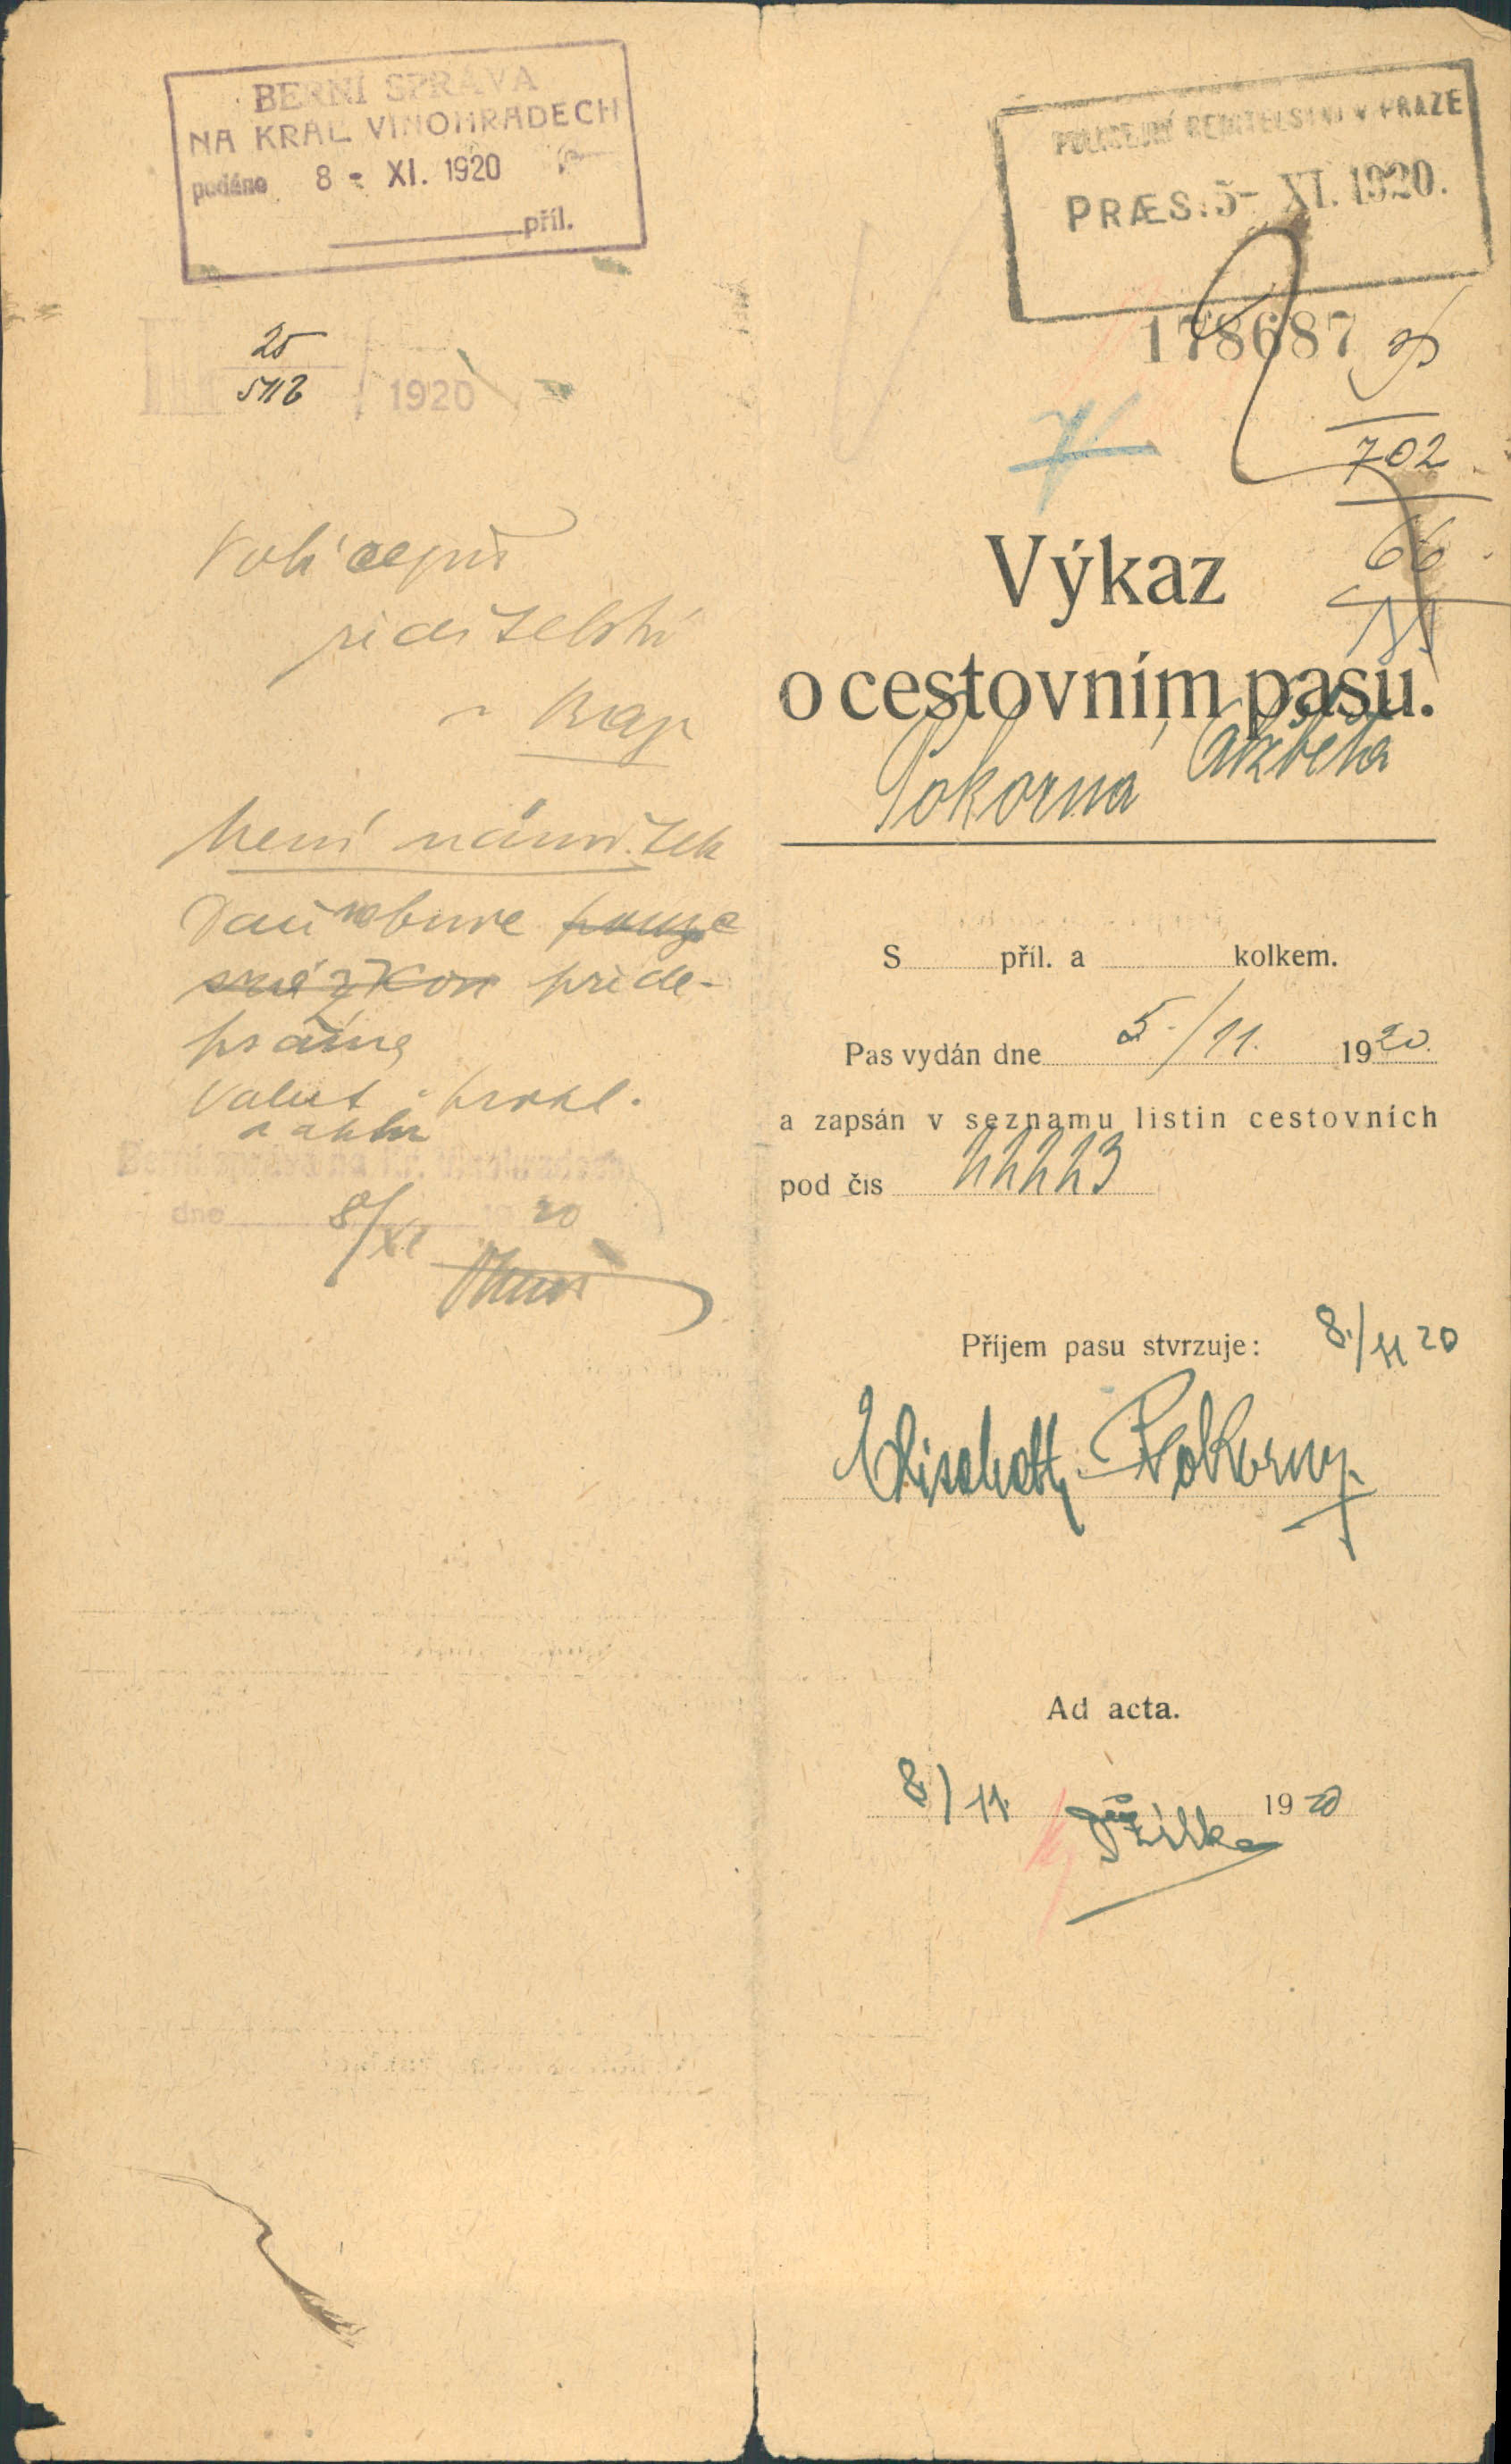 BERNÍ SPRÁVA
NA KRÁL. VINOHRADECH
podáno 8 - XI. 1920
příl.
III 25 / 1920
Policejní
ředitelství
v Praze
Není námitek
Daň
přede-
psána
Valut. prohl.
v aktu
dne 8/XI 1920
POLICEJNÍ ŘEDITELSTVÍ V PRAZE
PRÆS. 5 - XI. 1920.
178687
702
66
Výkaz
o cestovním pasu.
Pokorná Alžběta
S příl. a kolkem.
Pas vydán dne 5./11. 1920.
a zapsán v seznamu listin cestovních
pod čís
Příjem pasu stvrzuje: 8./11 20
Elisabeth Pokorny
Ad acta.
8/11. 1920